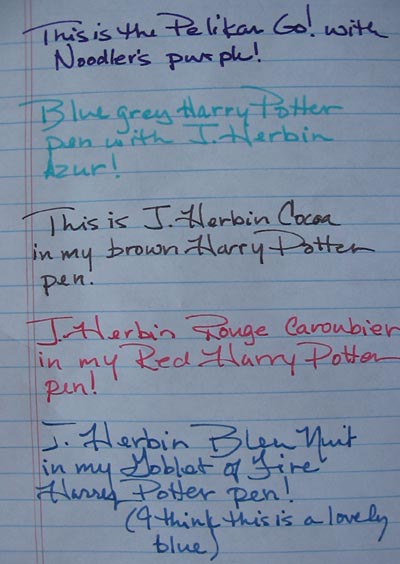 This is the Pelikan Go! with
Noodler's purple!
Blue grey Harry Potter
pen with J. Herbin
Azur!
This is J. Herbin Cocoa
in my brown Harry Potter
pen.
J. Herbin Rouge Caroubier
in my Red Harry Potter
pen!
J. Herbin Bleu Nuit
in my Goblet of Fire
Harry Potter pen!
(I think this is a lovely
blue)